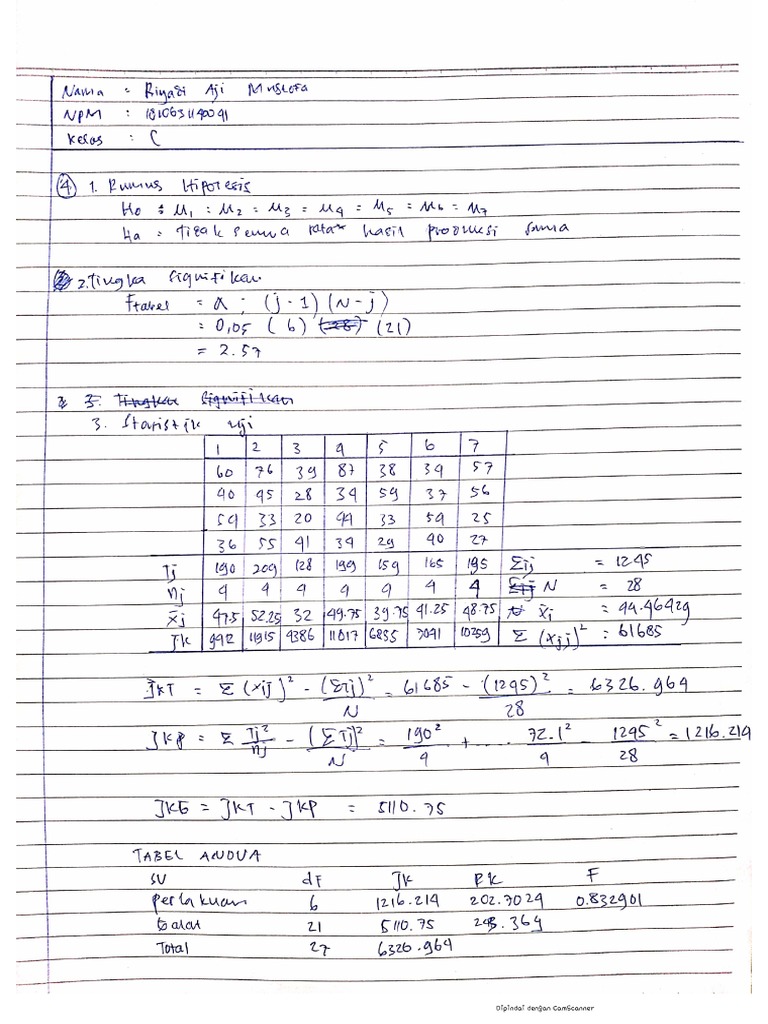 Nama : Riyadi Aji Mustofa
NPM :
Kelas : C
4. 1. Rumus Hipotesis
Ho : μ1 = μ2 = μ3 = μ4 = μ5 = μ6 = μ7
Ha = tidak semua rata² hasil produksi sama
2. Tingka Signifikan
Ftabel = α ; (j - 1) (N - j)
= 0,05 (6) (28) (21)
= 2.57
3. Tingkat Signifikan
3. Statistik uji
1 2 3 4 5 6 7
60 76 39 87 38 34 57
40 45 28 34 59 37 56
54 33 20 44 33 54 25
36 55 41 34 29 40 27
Tj 190 209 128 199 159 165 195 Σij = 1245
nj 4 4 4 4 4 4 4 N = 28
x̄j 47.5 52.25 32 49.75 39.75 41.25 48.75 x̄i = 44.46429
JK 11915 4386 11017 6855 7041 10259 Σ (xij)² = 61685
JKT = Σ (xij)² - (Στij)² / N = 61685 - (1245)² / 28 = 6326.964
JKP = Σ Tj² / nj - (ΣTj)² / N = 190² / 4 + .... 72.1² / 4 - 1245² / 28 = 1216.214
JKG = JKT - JKP = 5110.75
TABEL ANOVA
SV dF JK RK F
perlakuan 6 1216.214 202.7024 0.832901
Galat 21 5110.75 243.364
Total 27 6326.964
Dipindai dengan CamScanner